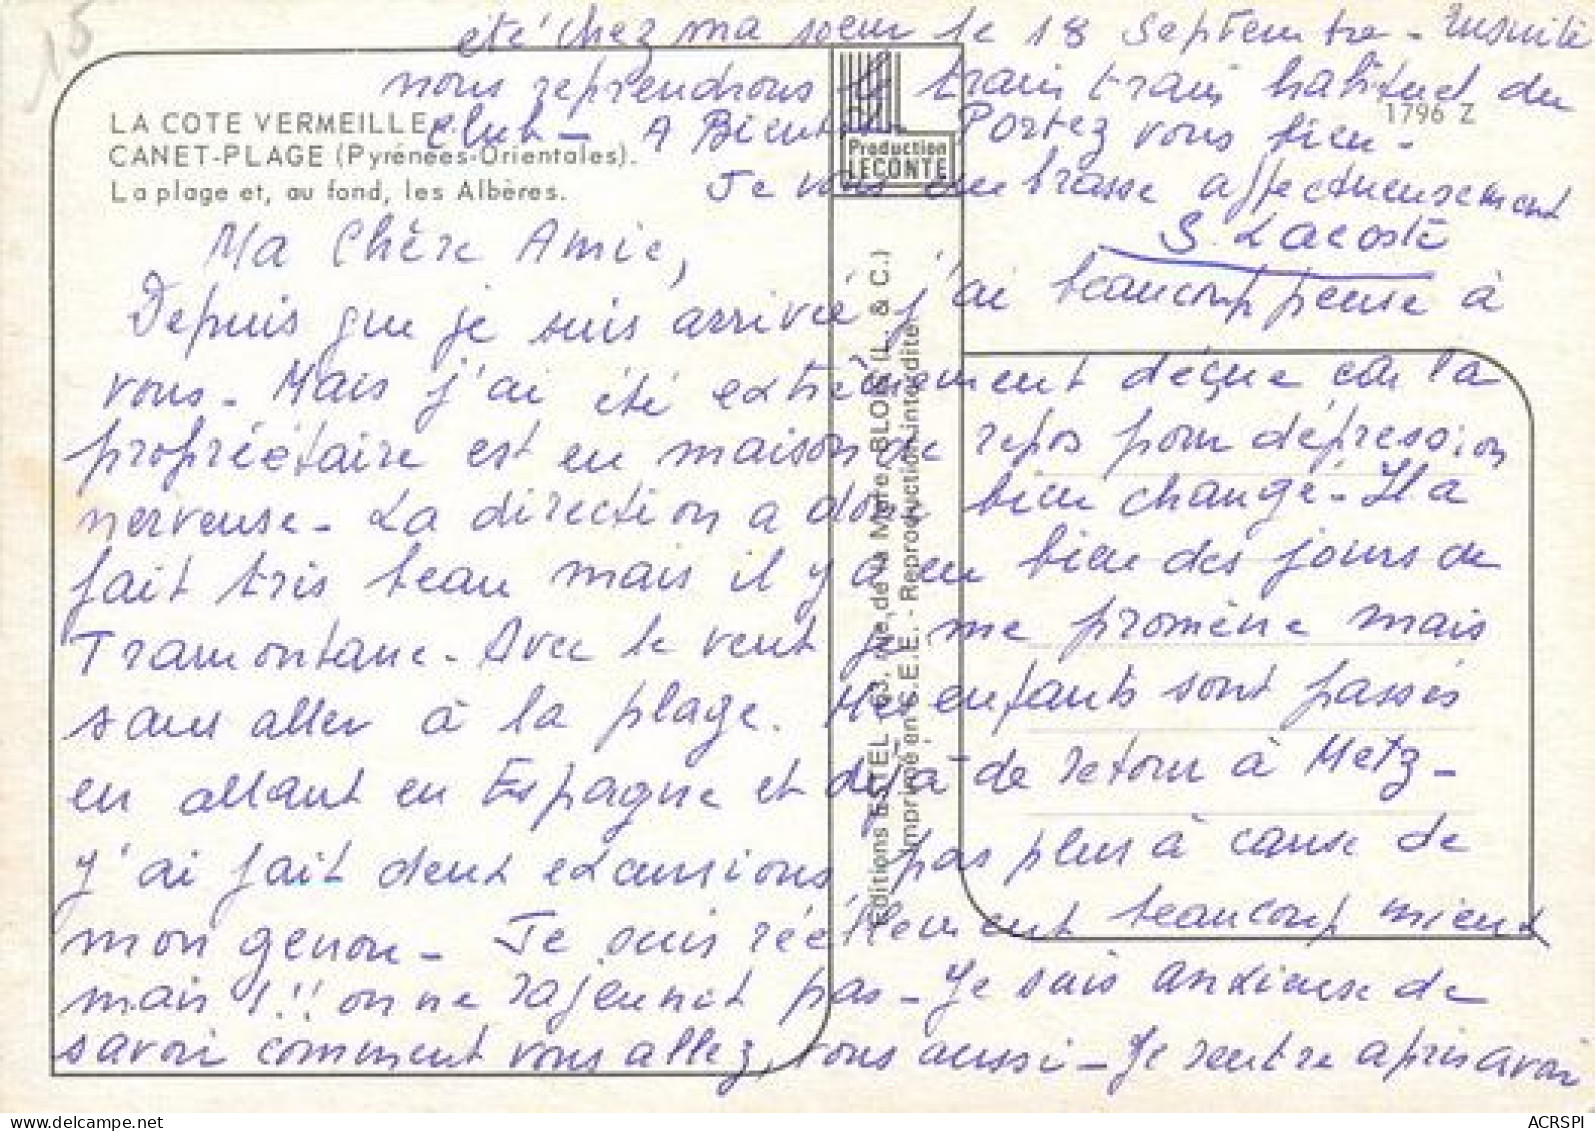 15
LA COTE VERMEILLE
CANET-PLAGE (Pyrénées-Orientales).
La plage et, au fond, les Albères.
1796 Z
Production
LECONTE
Editions ESTEL 63, rue de la Mare, BLOIS (L. & C.)
Imprimé en C.E.E. - Reproduction interdite
Ma Chère Amie,
Depuis que je suis arrivée j'ai beaucoup pensé à
vous. Mais j'ai été extrêmement déçue car la
propriétaire est en maison de repos pour dépression
nerveuse - La direction a donc bien changé - Il a
fait très beau mais il y a eu bien des jours de
Tramontane. Avec le vent je me promène mais
sans aller à la plage. Mes enfants sont passés
en allant en Espagne et déjà de retour à Metz -
J'ai fait deux excursions, pas plus à cause de
mon genou - Je suis réellement beaucoup mieux
mais !!! on ne rajeunit pas - Je suis anxieuse de
savoir comment vous allez, vous aussi - Je rentre après avoir
été chez ma soeur le 18 Septembre - Ensuite
nous reprendrons le train train habituel du
Club - A Bientôt Portez vous bien -
Je vous embrasse affectueusement
S. Lacoste
ACRSPI